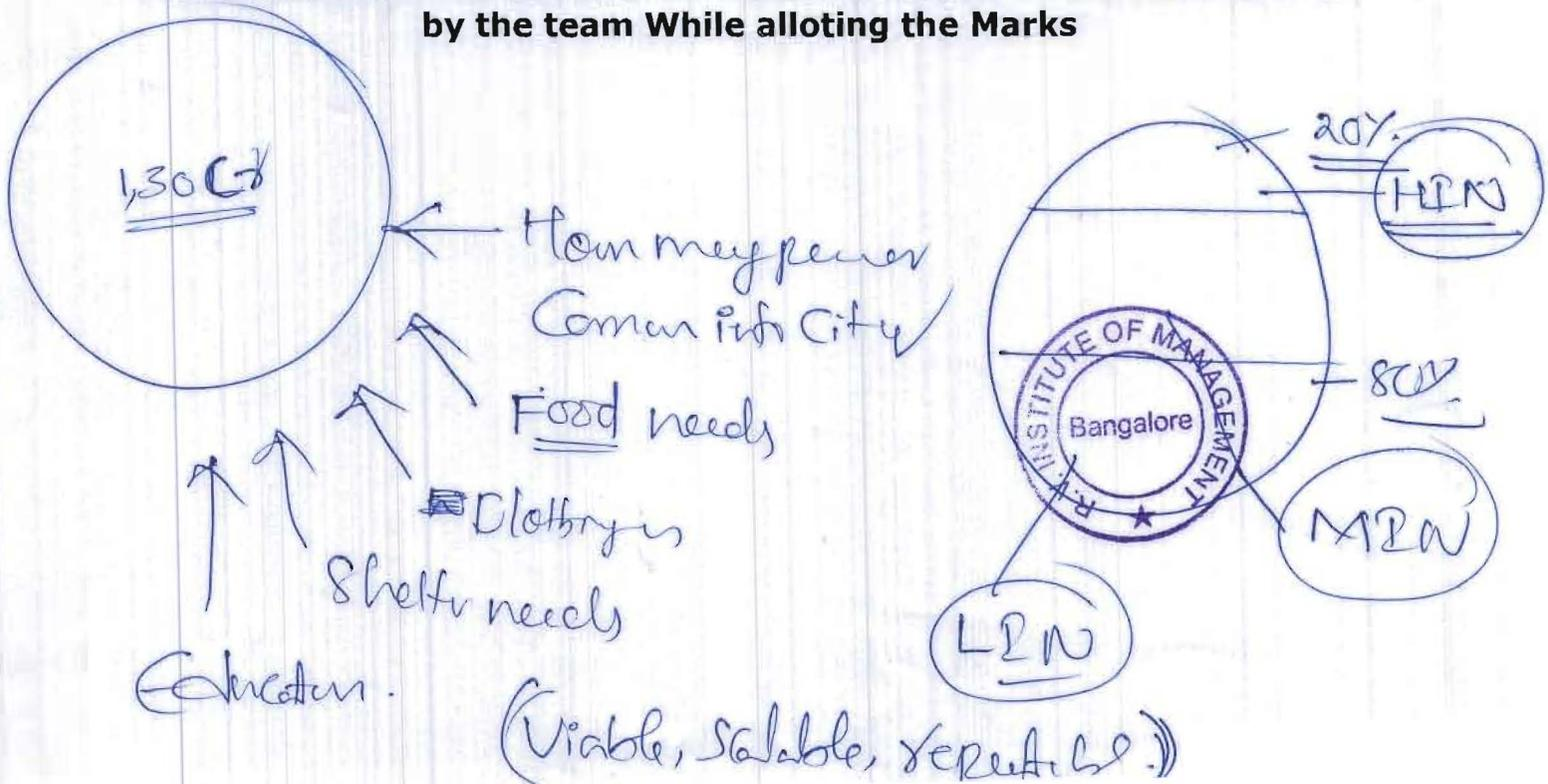 by the team While alloting the Marks
1,30 Cr
How many
into City
Food needs
Shelter needs
Education.
(Viable, Scalable, repeatable.)
20%.
HIN
80%
MIN
LIN
R.V. INSTITUTE OF MANAGEMENT
Bangalore